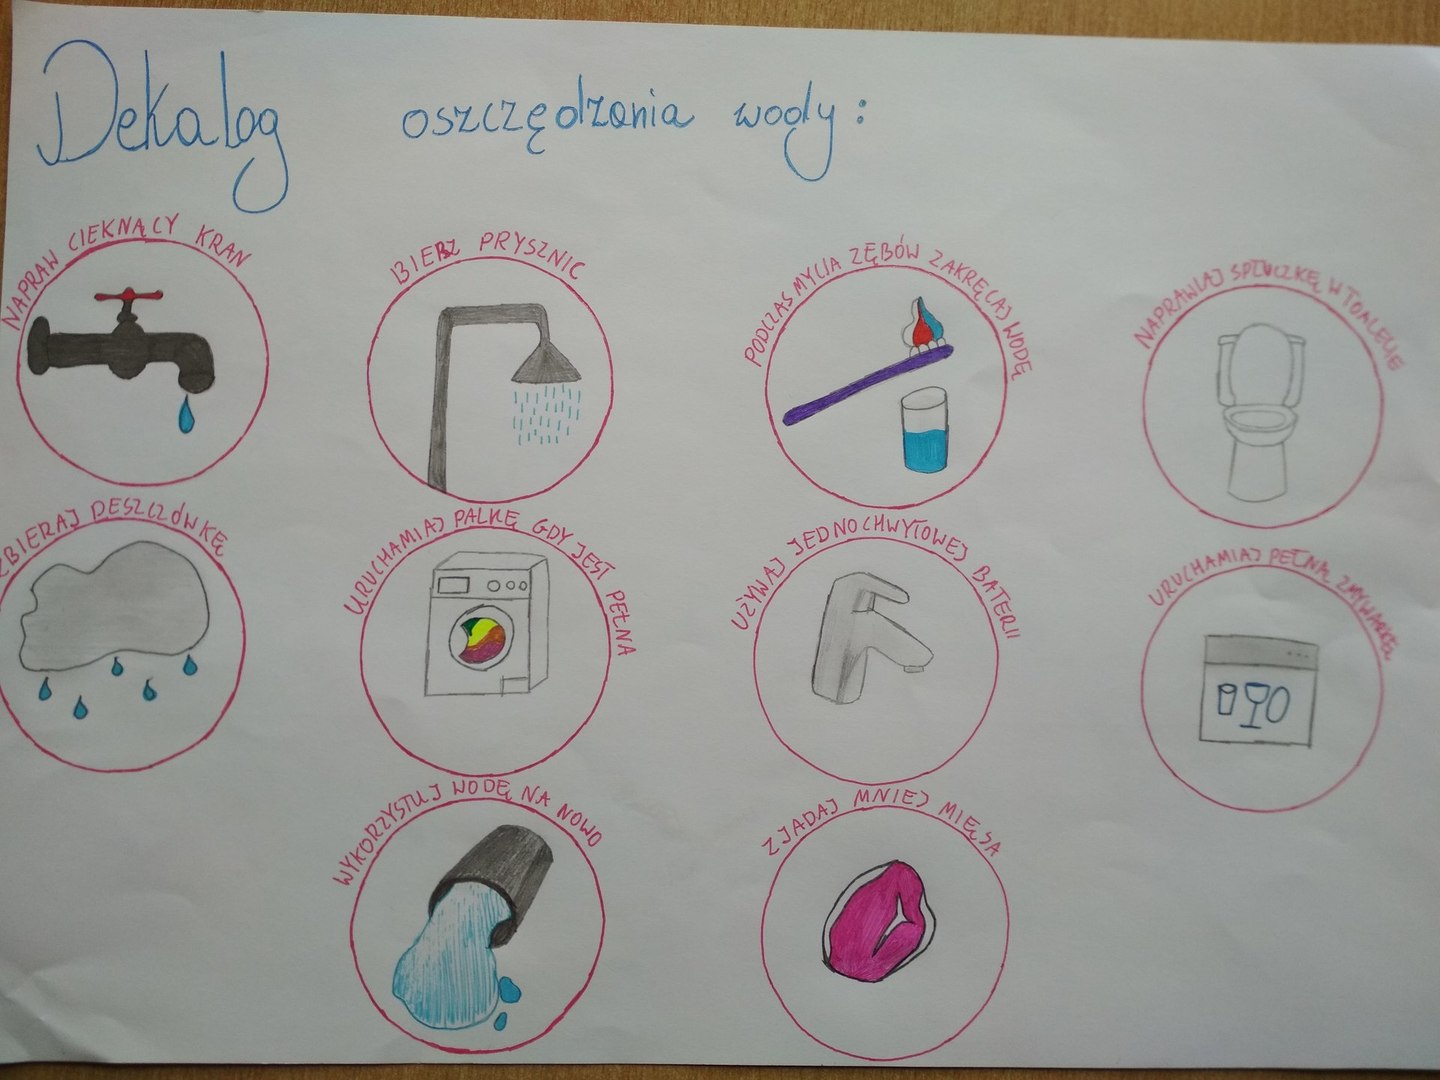 Dekalog oszczędzania wody:
NAPRAW CIEKNĄCY KRAN
BIERZ PRYSZNIC
PODCZAS MYCIA ZĘBÓW ZAKRĘCAJ WODĘ
NAPRAWIAJ SPŁUCZKĘ W TOALECIE
ZBIERAJ DESZCZÓWKĘ
URUCHAMIAJ PALKĘ GDY JEST PEŁNA
UŻYWAJ JEDNOCHWYTOWEJ BATERII
URUCHAMIAJ PEŁNĄ ZMYWARKĘ
WYKORZYSTUJ WODĘ NA NOWO
ZJADAJ MNIEJ MIĘSA